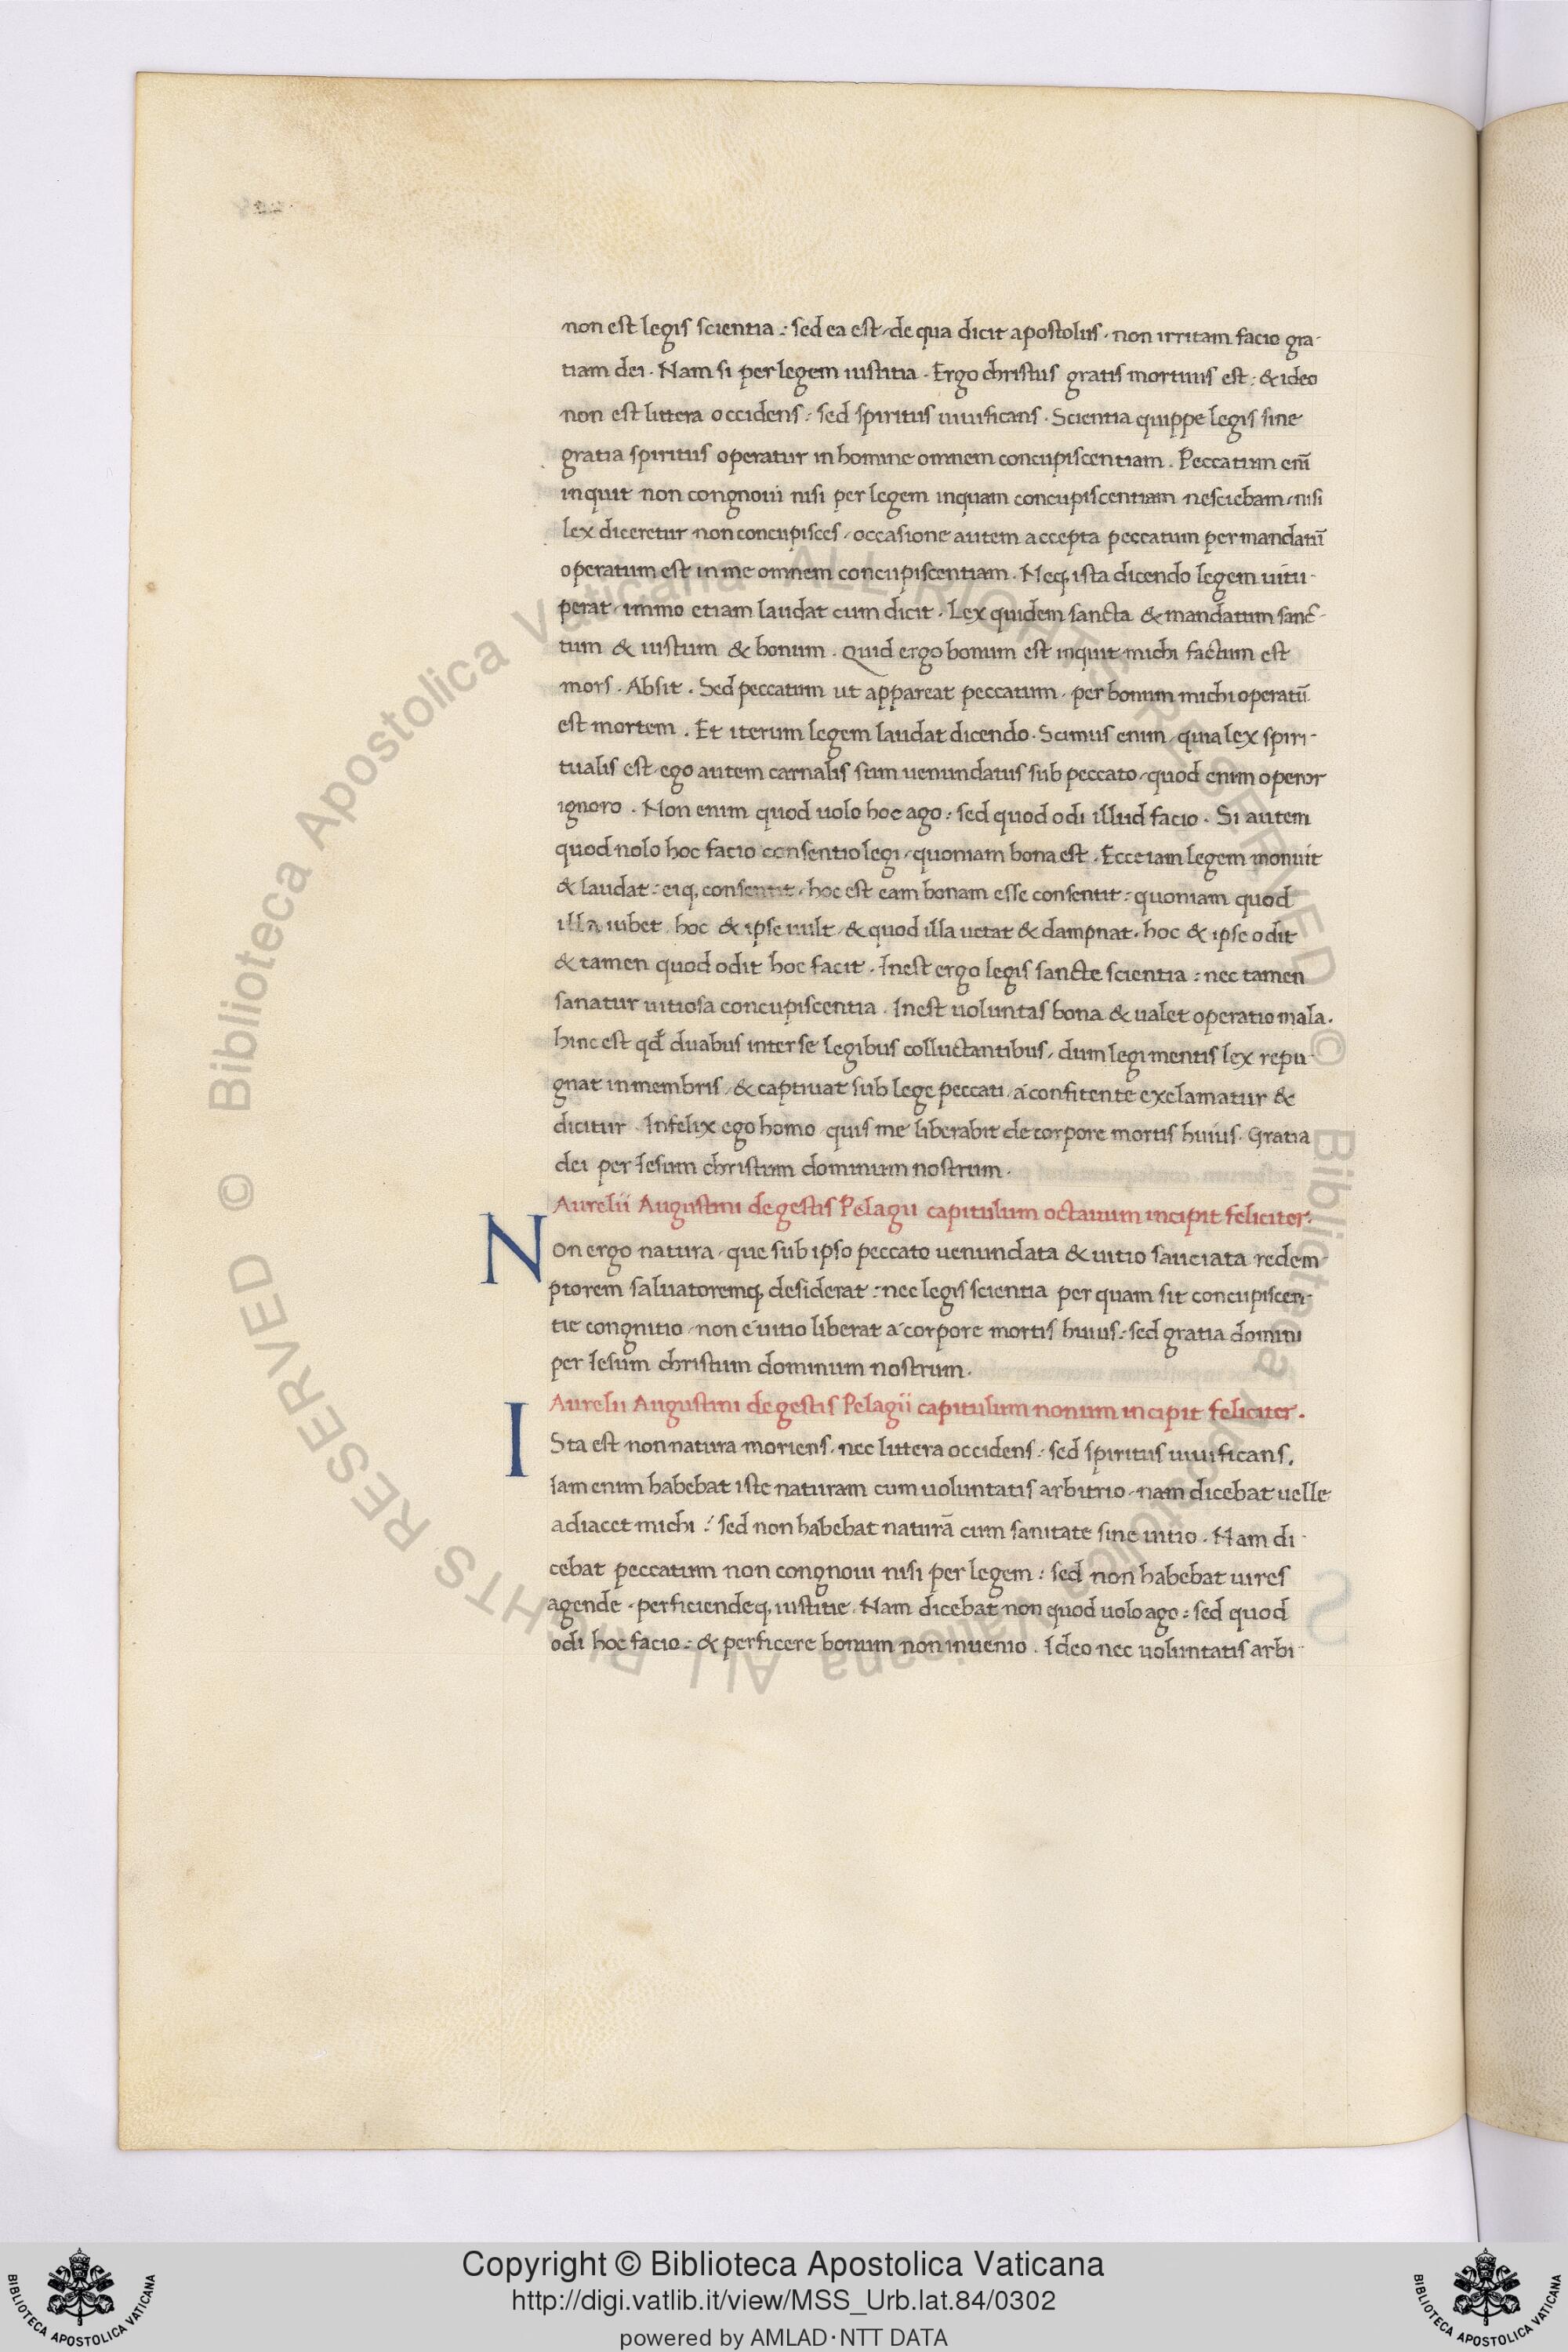 non est legis scientia : sed ea est / de qua dicit apostolus · non irritam facio gra-
tiam dei · Nam si per legem iustitia · Ergo christus gratis mortuus est : & ideo
non est littera occidens : sed spiritus uiuificans · Scientia quippe legis sine
gratia spiritus operatur in homine omnem concupiscentiam . Peccatum eni͂
inquit non congnoui nisi per legem inquam concupiscentiam nesciebam / nisi
lex diceretur non concupisces / occasione autem accepta peccatum per mandatū
operatum est in me omnem concupiscentiam . Neq, ista dicendo legem uitu-
perat / immo etiam laudat cum dicit · Lex quidem sancta & mandatum sanc-
tum & iustum & bonum . Quid ergo bonum est inquit michi factum est
mors · Absit . Sed peccatum ut appareat peccatum / per bonum michi operatū
est mortem . Et iterum legem laudat dicendo · Scimus enim / quia lex spiri-
tualis est / ego autem carnalis sum uenundatus sub peccato / quod enim operor
ignoro . Non enim quod uolo hoc ago : sed quod odi illud facio · Si autem
quod nolo hoc facio consentio legi / quoniam bona est . Ecce iam legem monuit
& laudat : eiq, consentit / hoc est eam bonam esse consentit : quoniam quod
illa iubet hoc & ipse uult / & quod illa uetat & dampnat · hoc & ipse odit
& tamen quod odit hoc facit . Inest ergo legis sancte scientia : nec tamen
sanatur uitiosa concupiscentia . Inest uoluntas bona & ualet operatio mala .
hinc est qđ duabus inter se legibus colluctantibus / dum legi mentis lex repu-
gnat in membris / & captiuat sub lege peccati / a confitente exclamatur &
dicitur . Infelix ego homo quis me liberabit de corpore mortis huius · Gratia
dei per Iesum christum dominum nostrum .
Aurelii Augustini de gestis Pelagii capitulum octauum incipit feliciter .
Non ergo natura / que sub ipso peccato uenundata & uitio sauciata redem-
ptorem saluatoremq, desiderat : nec legis scientia per quam fit concupiscen-
tie congnitio / non e uitio liberat a corpore mortis huius : sed gratia domini
per Iesum christum dominum nostrum .
Aurelii Augustini de gestis Pelagii capitulum nonum incipit feliciter .
ISta est non natura moriens / nec littera occidens : sed spiritus uiuificans .
Iam enim habebat iste naturam cum uoluntatis arbitrio / nam dicebat uelle
adiacet michi : sed non habebat naturā cum sanitate sine uitio . Nam di-
cebat peccatum non congnoui nisi per legem : sed non habebat uires
agende / perficiendeq, iustitie . Nam dicebat non quod uolo ago : sed quod
odi hoc facio : & perficere bonum non inuenio . Ideo nec uoluntatis arbi-
© Biblioteca Apostolica Vaticana ALL RIGHTS RESERVED
© Biblioteca Apostolica Vaticana ALL RIGHTS RESERVED
Copyright © Biblioteca Apostolica Vaticana
http://digi.vatlib.it/view/MSS_Urb.lat.84/0302
powered by AMLAD·NTT DATA
BIBLIOTECA APOSTOLICA VATICANA
BIBLIOTECA APOSTOLICA VATICANA